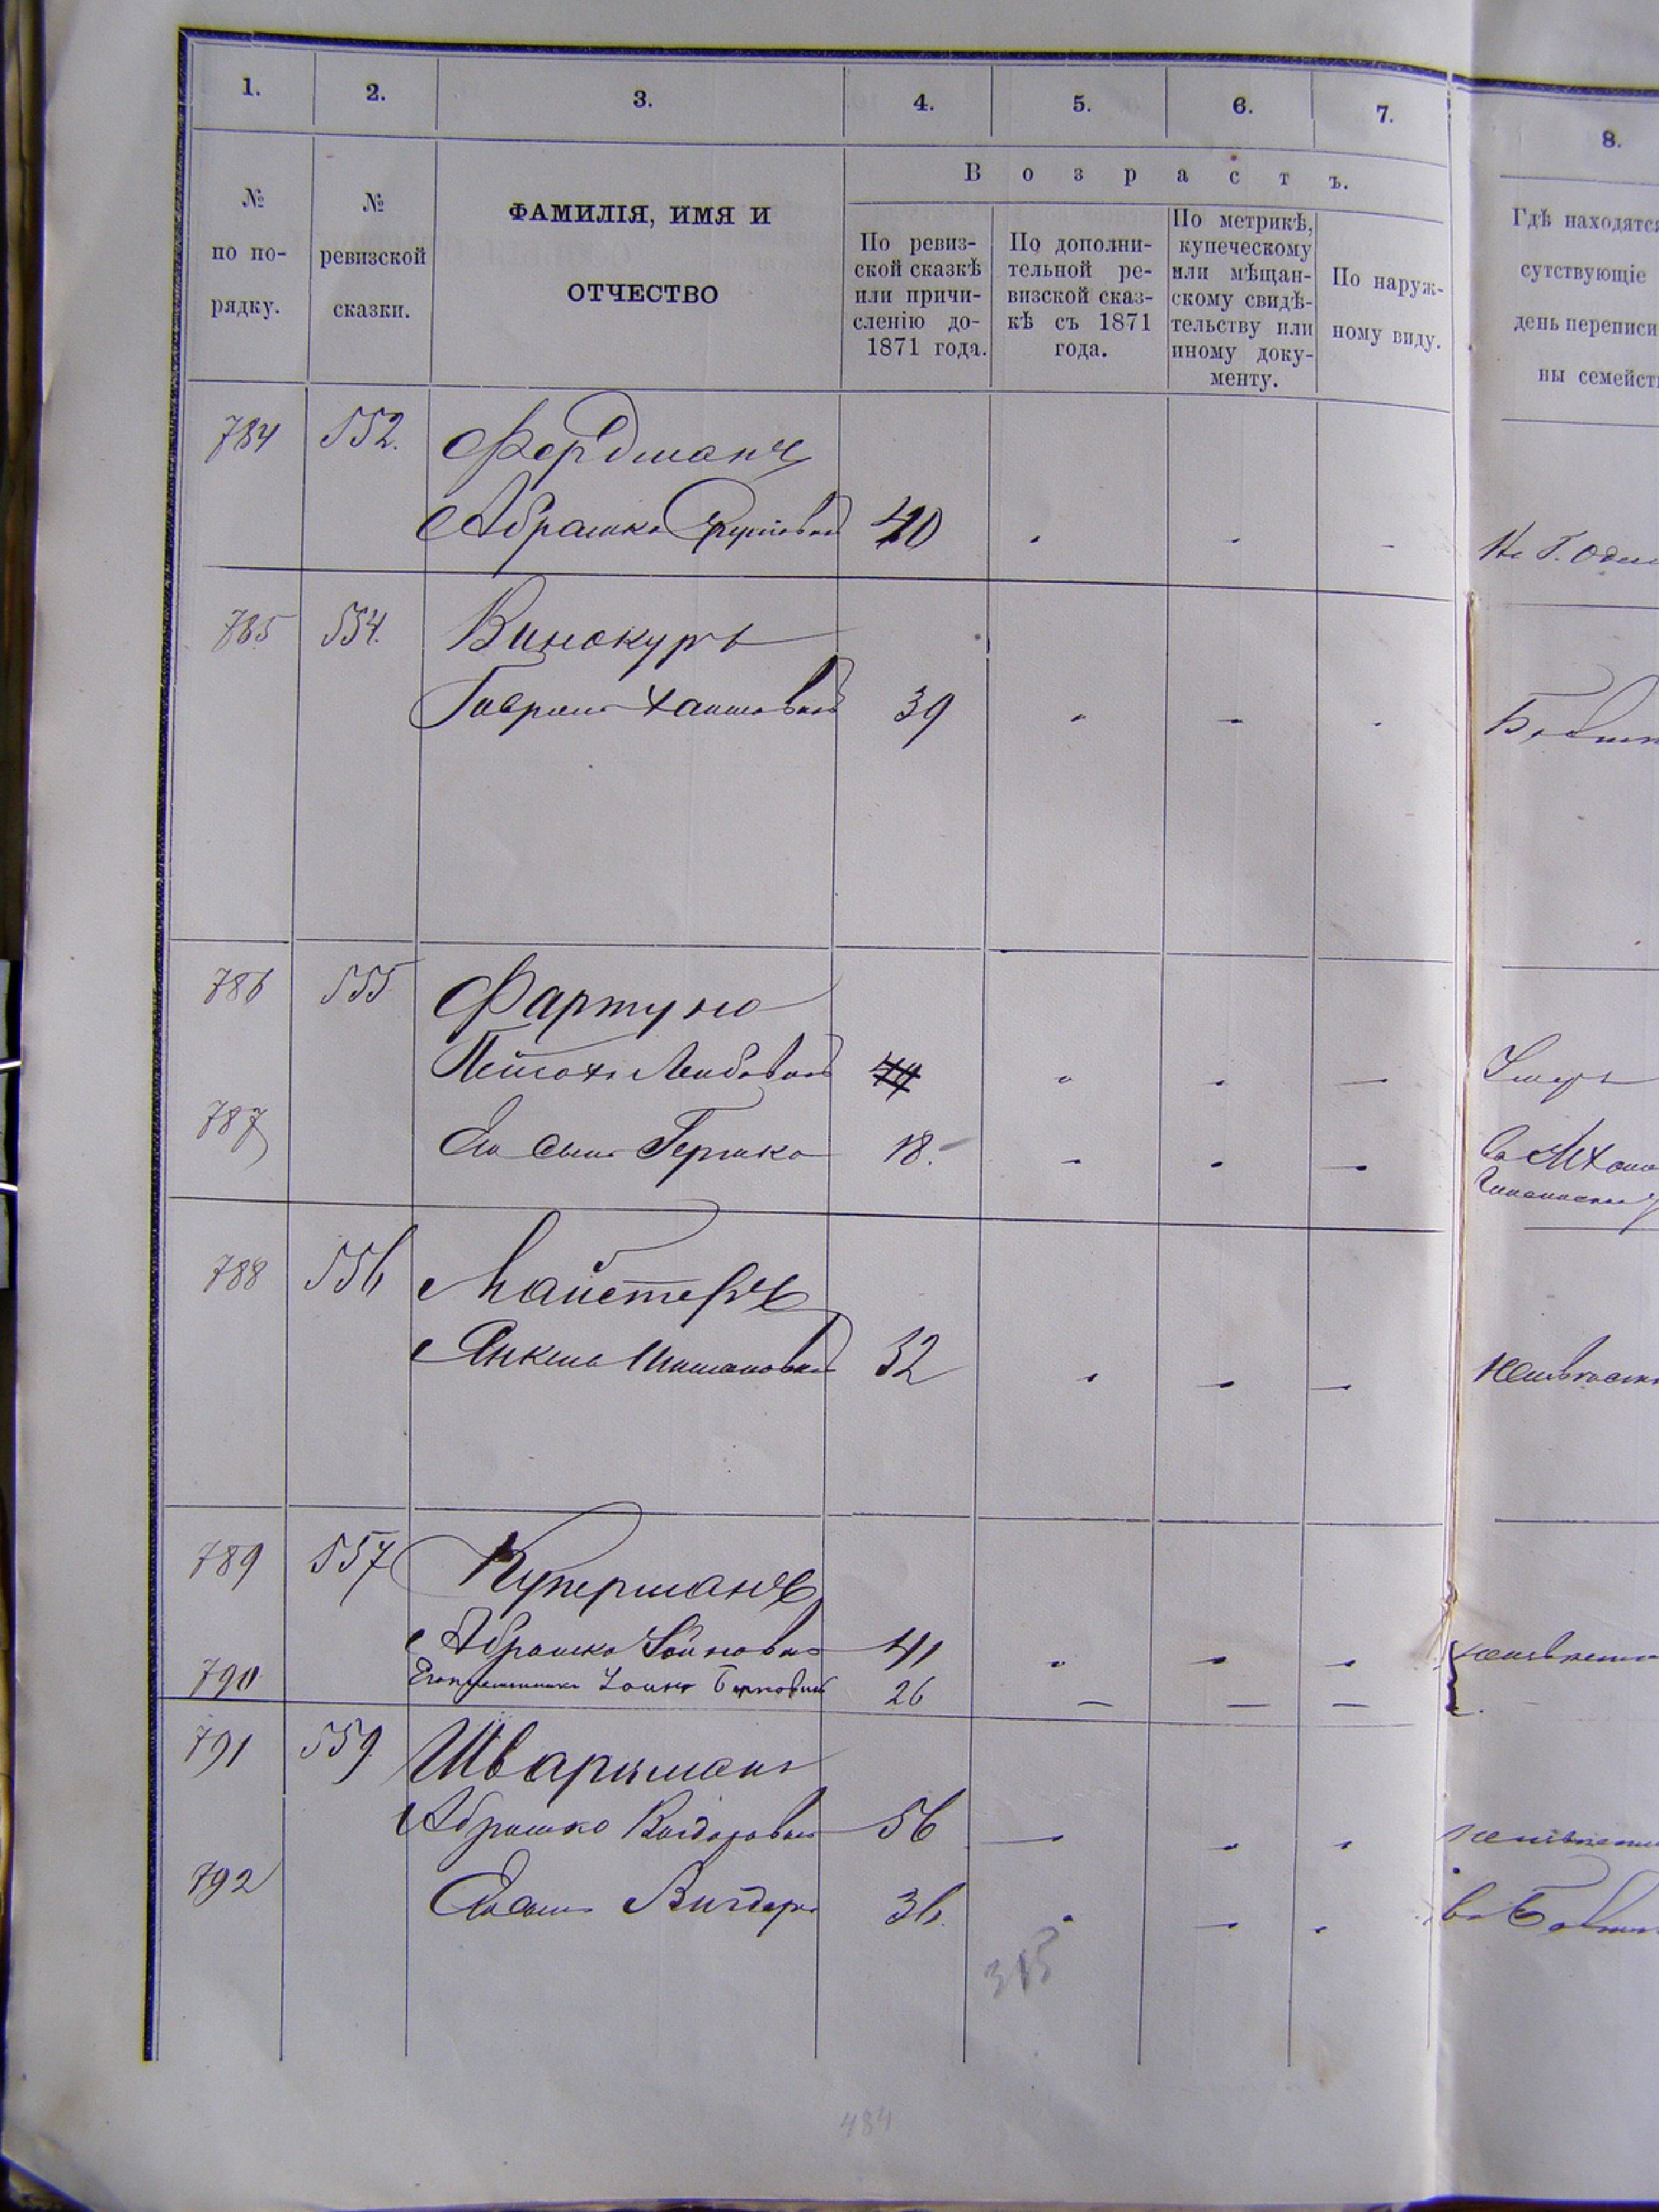 1. 2. 3. 4. 5. 6. 7. 8.
В о з р а с т ъ.
№
по по-
рядку.
№
ревизской
сказки.
ФАМИЛІЯ, ИМЯ И
ОТЧЕСТВО
По ревиз-
ской сказкѣ
или причи-
сленію до-
1871 года.
По дополни-
тельной ре-
визской сказ-
кѣ съ 1871
года.
По метрикѣ,
купеческому
или мѣщан-
скому свидѣ-
тельству или
иному доку-
менту.
По наруж-
ному виду.
Гдѣ находятся
сутствующіе
день переписи
ны семейст
784 552. Фердманъ
Абрашко 40
785 554. Винокуръ
39
786 555 Фартуно
Лейбовичъ 44 Умеръ
787 Его сынъ Гершко 18.
788 556 Майстеръ
Янкель 32
789 557 Куперманъ
Абрашко 41
790 Его племянникъ 26
791 559 Шварцманъ
Абрашко Вигдоровичъ 56
792 Его сынъ Вигдоръ 36.
315
484